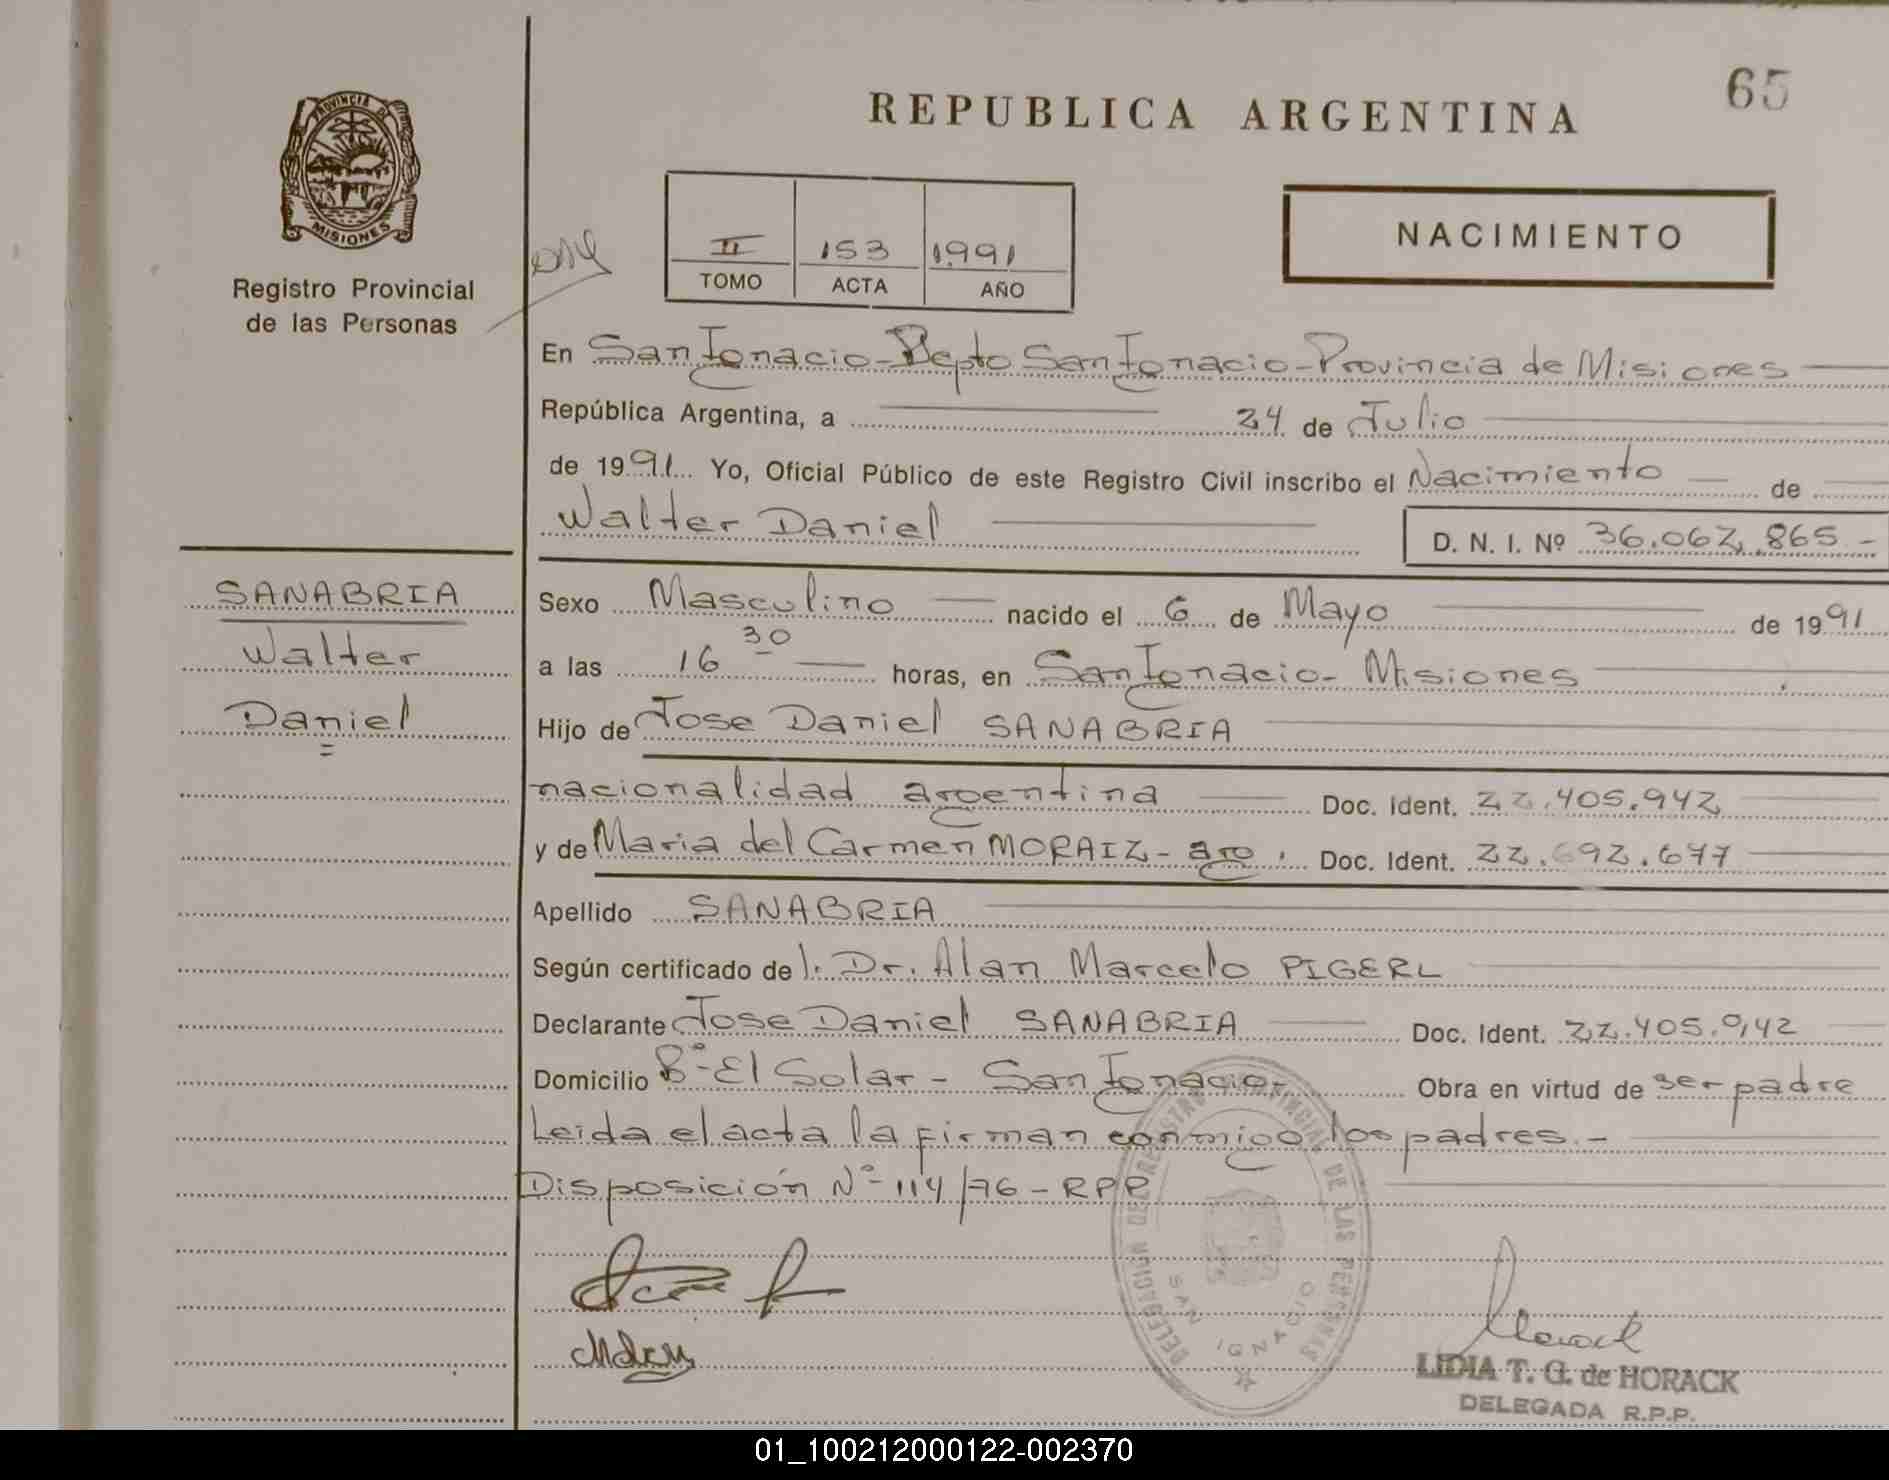 65
REPUBLICA ARGENTINA
PROVINCIA DE
MISIONES
Registro Provincial
de las Personas
II 153 1991
TOMO ACTA AÑO
NACIMIENTO
En San Ignacio - Depto San Ignacio - Provincia de Misiones
República Argentina, a 24 de Julio
de 1991 Yo, Oficial Público de este Registro Civil inscribo el Nacimiento de
Walter Daniel D. N. I. Nº 36.062.865 -
SANABRIA
Walter
Daniel
Sexo Masculino nacido el 6 de Mayo de 1991
a las 16 30 horas, en San Ignacio - Misiones
Hijo de Jose Daniel SANABRIA
nacionalidad argentina Doc. Ident. 22.405.942
y de Maria del Carmen MORAIZ - arg. Doc. Ident. 22.692.677
Apellido SANABRIA
Según certificado de l. Dr. Alan Marcelo PIGERL
Declarante Jose Daniel SANABRIA Doc. Ident. 22.405.942
Domicilio Bº - El Solar - San Ignacio - Obra en virtud de ser padre
Leida el acta la firman conmigo los padres. -
Disposición Nº - 114/76 - RPP
DELEGACION DEL REGISTRO PROVINCIAL DE LAS PERSONAS
SAN IGNACIO
Horack
LIDIA T. G. de HORACK
DELEGADA R.P.P.
01_100212000122-002370